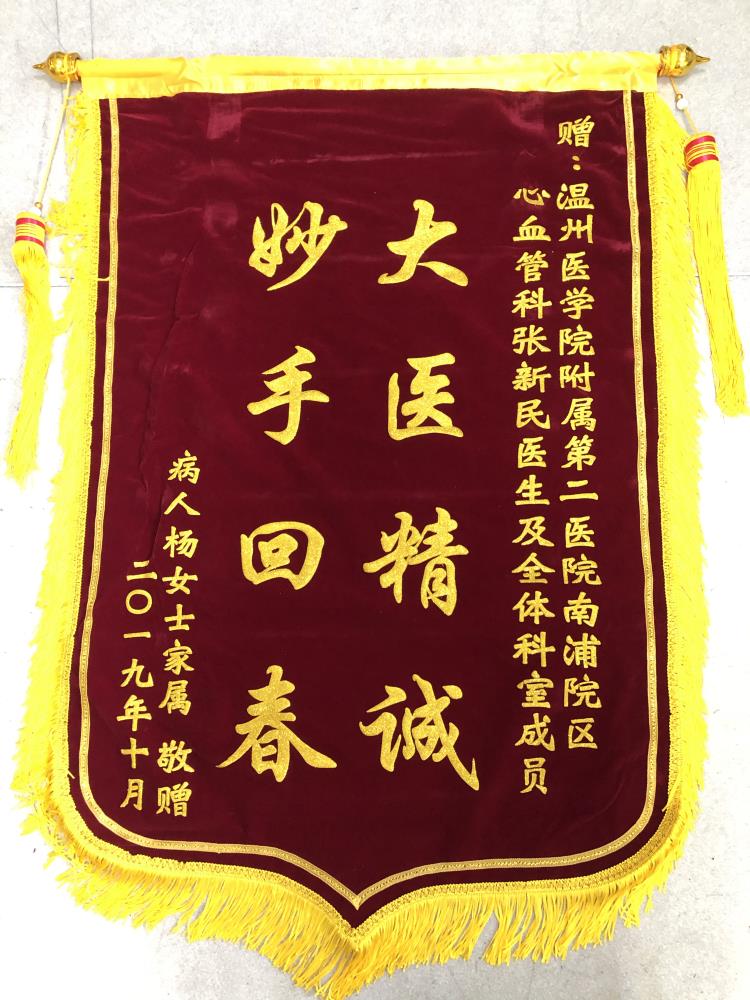 赠：温州医学院附属第二医院南浦院区
心血管科张新民医生及全体科室成员
大医精诚
妙手回春
病人杨女士家属 敬赠
二〇一九年十月